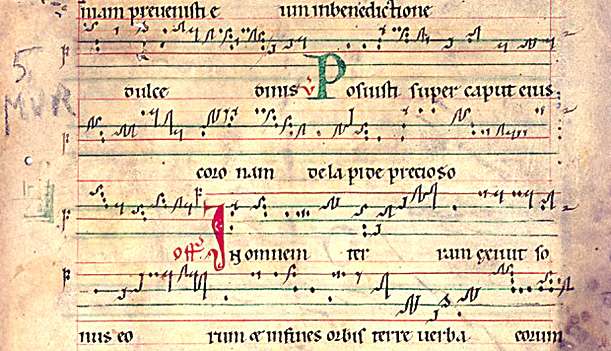 niam prevenisti e um inbenedictione
dulce dinis v Posuisti super caput eius
5
MVR
coro nam de la pide precioso
off In omnem ter ram exivit so
nus eo rum & infines orbis terre verba eorum